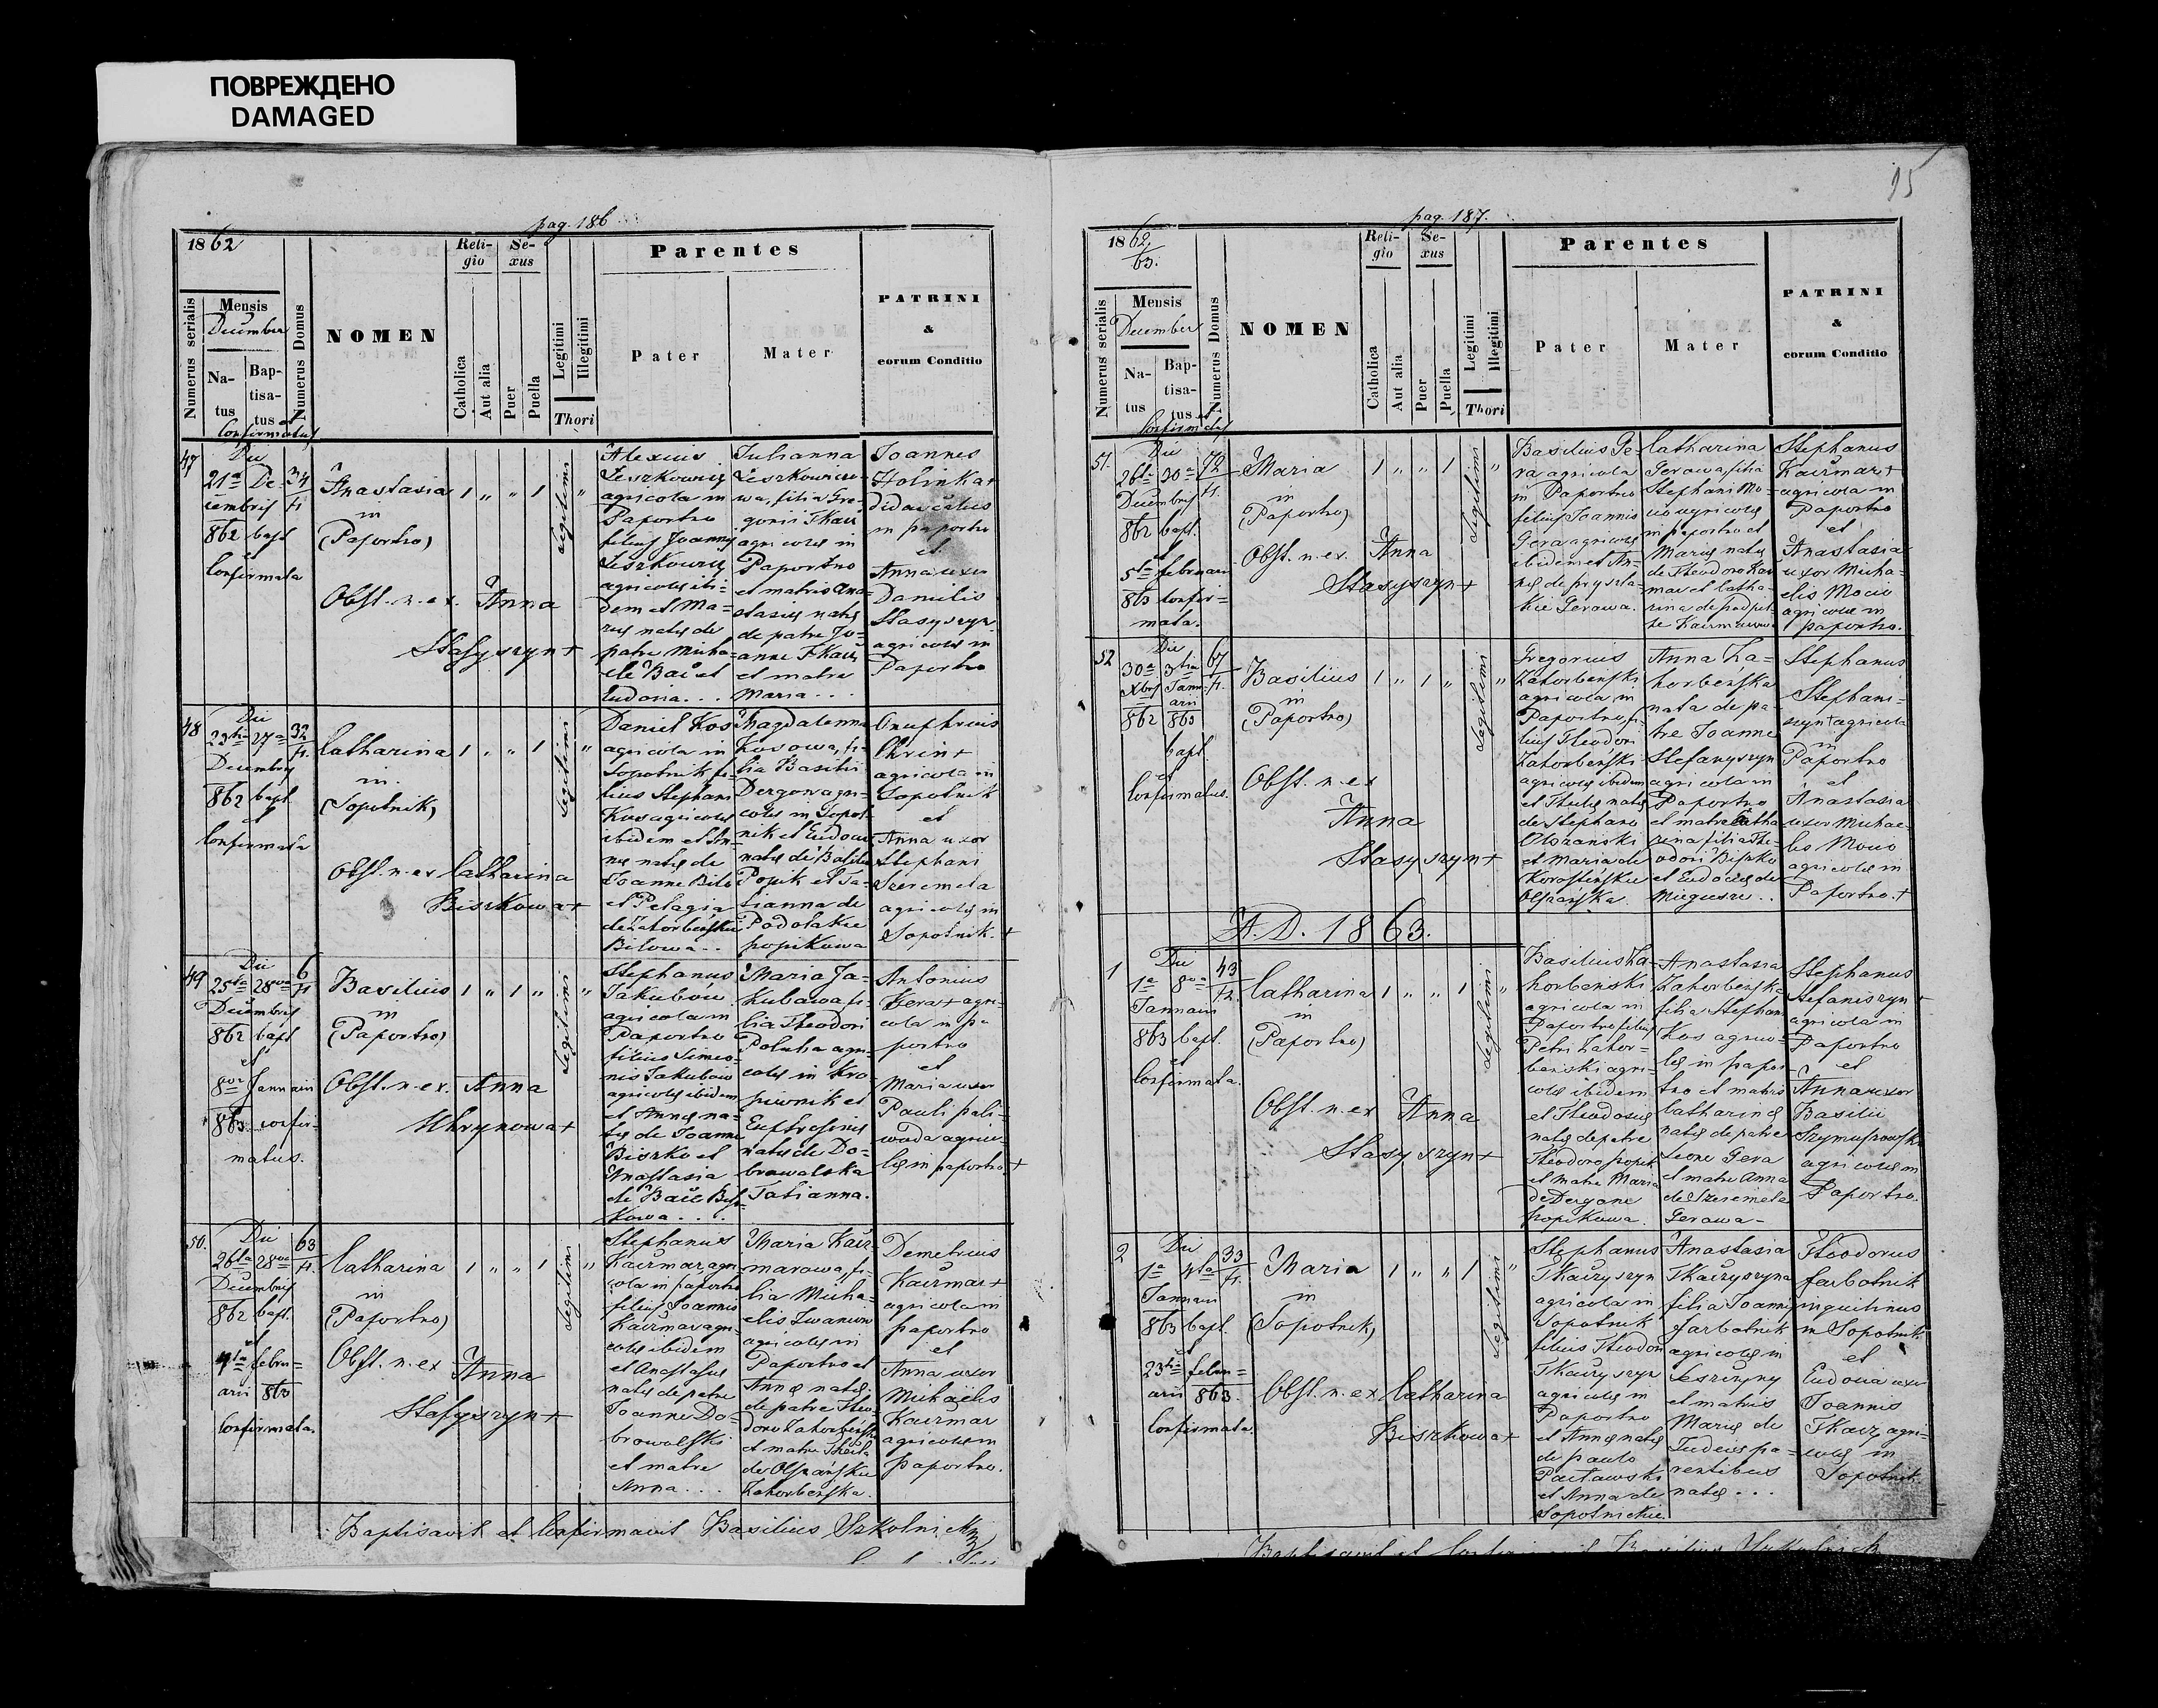 ПОВРЕЖДЕНО
DAMAGED
95
pag. 186
1862
Numerus serialis
Mensis
December
Na-
tus
Bap-
tisa-
tus et
Confirmatus
Numerus Domus
NOMEN
Reli-
gio
Catholica
Aut alia
Se-
xus
Puer
Puella
Legitimi
Illegitimi
Thori
Parentes
Pater
Mater
PATRINI
&
eorum Conditio
47
Die
21a De
cembris
862 bapt
et
Confirmata
34
Anastasia
in
(Paportno)
Obst. n. ex. Anna
Stasyszyn +
1 " " 1
Legitimi
"
Alexius
Leszkowicz
agricola in
Paportno
filius Joannis
Leszkowicz
agricolę ibi-
dem et Ma-
rię natę de
patre Micha-
ele Bać et
Eudoxia...
Julianna
Leszkowiczo-
wa, filia Gre-
gorii Tkacz
agricolę in
Paportno
et matris Ana-
stasię natę
de patre Jo-
anne Tkacz
et matre
Maria...
Joannes
Holinka +
in paportno
et
Anna uxor
Danielis
Stasyszyn
agricolę in
Paportno
48
Die
23tia 27a
Decembris
862 bapt
et
Confirmata
32
Catharina
in
(Sopotnik)
Obst. n. ex Catharina
Biszkowa +
1 " " 1
Legitimi
"
Daniel Kos
agricola in
Sopotnik fi-
lius Stephani
Kos agricolę
ibidem et An-
nę natę de
Joanne Bilo
et Pelagia
de Zahorbeńskie
Bilowa..
Magdalenna
Kosowa, fi-
lia Basilii
Dergon agri-
colę in Sopot-
nik et Eudoxię
natę de Basilio
Popik et Ta-
tianna de
Podolakie
popikowa
Onuphrius
Chrin +
agricola in
Sopotnik
et
Anna uxor
Stephani
Szeremeta
agricolę in
Sopotnik. +
49
Die
25ta 28va
Decembris
862 bapt
et
8va Januarii
863 confir-
matus.
6
Basilius
in
(Paportno)
Obst. n. ex. Anna
Uhrynowa +
1 " 1 "
Legitimi
"
Stephanus
Jakubów
agricola in
Paportno
filius Simeo-
nis Jakubów
agricolę ibidem
et Annę na-
tę de Joanne
Biszko et
Anastasia
de Bać Bisz-
kowa....
Maria Ja-
kubowa, fi-
lia Theodori
Poluha agri-
colę in Kro-
piwnik et
Eufrosinię
natę de Do-
browolska
Tatianna.
Antonius
Gera + agri-
cola in pa-
portno
et
Maria uxor
Pauli pali-
woda agrico-
lę in paportno +
50.
Die
26ta 28va
Decembris
862 bapt.
et
4ta febru=
arii 863
Confirmata.
63
Catharina
in
(Paportno)
Obst. n. ex Anna
Stasyszyn +
1 " " 1
Legitimi
"
Stephanus
Kaczmar, agri-
cola in paportno
filius Joannis
Kaczmar agri-
colę ibidem
et Anastasię
natę de patre
Joanne Do-
browolski
et matre
Anna...
Maria Kacz-
marowa, fi-
lia Micha-
elis Iwaniow
agricolę in
Paportno et
Annę natę
de patre Theo-
doro Zahorbeński
et matre Thecla
de Olszańskie
Zahorbeńska.
Demetrius
Kaczmar +
agricola in
paportno
et
Anna uxor
Michaelis
Kaczmar
agricolę in
paportno.
Baptisavit et Confirmavit Basilius Szkolnicki
pag. 187.
1862
63.
Numerus serialis
Mensis
December
Na-
tus
Bap-
tisa-
tus et
Confirmatus
Numerus Domus
NOMEN
Reli-
gio
Catholica
Aut alia
Se-
xus
Puer
Puella
Legitimi
Illegitimi
Thori
Parentes
Pater
Mater
PATRINI
&
eorum Conditio
51.
Die
26ta 30a
Decembris
862 bapt.
et
5ta februarii
863 Confir=
mata.
72
Maria
in
(Paportno)
Obst. n. ex. Anna
Stasyszyn +
1 " " 1
Legitimi
"
Basilius Ge-
ra agricola
in Paportno
filius Joannis
Gera agricolę
ibidem et An-
nę de pryszla-
kie Gerowa.
Catharina
Gerowa, filia
Stephani Mo-
cio agricolę
in paportno et
Marię natę
de Theodoro Kacz
mar et Catha-
rina de
Kaczmarowa
Stephanus
Kaczmar +
agricola in
Paportno
et
Anastasia
uxor Micha-
elis Mocio
agricolę in
paportno.
52
Die
30a 3tia
Xbris Janu-
arii
862 863
bapt.
et
Confirmatus.
67
Basilius
in
(Paportno)
Obst. n. ex
Anna
Stasyszyn +
1 " 1 "
Legitimi
"
Gregorius
Zahorbeński
agricola in
Paportno, fi-
lius Theodori
Zahorbeński
agricolę ibidem
et Theclę natę
de Stephano
Olszanski
et Maria de
Korosteńskie
Olszańska.
Anna Za=
horbenska
nata de pa-
tre Joanne
Stefanyszyn
agricola in
Paportno
et matre Catha
rina filia The-
odori Biszko
et Eudocię de
Stephanus
Stephani-
szyn + agricola
in
Paportno
et
Anastasia
uxor Michae-
lis Mocio
agricolę in
Paportno. +
A.D. 1863.
1
Die
1a 8va
Januarii
863 bapt.
et
Confirmata.
43
Catharina
in
(Paportno)
Obst. n. ex Anna
Stasyszyn +
1 " " 1
Legitimi
"
Basilius Za-
horbenski
agricola in
Paportno filius
Petri Zahor-
benski agri-
colę ibidem
et Theodosię
natę de patre
Theodoro popik
et matre Maria
de Dergone
popikowa.
Anastasia
Zahorbenska
filia Stephani
Kos agrico-
lę in papor-
tno et matris
Catharinę
natę de patre
Leone Gera
et matre Anna
de Szeremeta
Gerowa -
Stephanus
Stefaniszyn +
agricola in
Paportno
et
Anna uxor
Basilii
agricolę in
Paportno.
2
Die
1a 4ta
Januarii
863 bapt.
et
23tia febru=
arii 863.
Confirmata.
33
Maria
in
(Sopotnik)
Obst. n. ex Catharina
Biszkowa +
1 " " 1
Legitimi
"
Stephanus
Tkaczyszyn
agricola in
Sopotnik
filius Theodori
Tkaczyszyn
agricolę in
Paportno
et Annę natę
de paulo
Pacławski
et Anna de
Sopotnickie
Anastasia
Tkaczyszyna
filia Joannis
Jarbotnik
agricolę in
et matris
Marię de
Judeis pa-
rentibus
natę...
Theodorus
Jarbotnik
inquilinus
in Sopotnik
et
Eudocia uxor
Joannis
Tkacz, agri-
colę in
Sopotnik.
Baptisavit et Confirmavit Basilius Szkolnicki